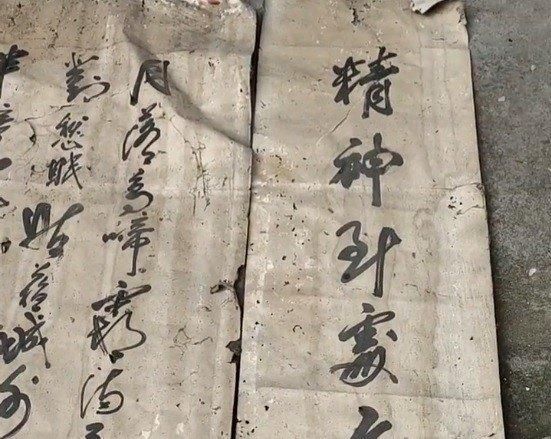 精神到處
月落烏啼霜滿
對愁眠姑蘇城外